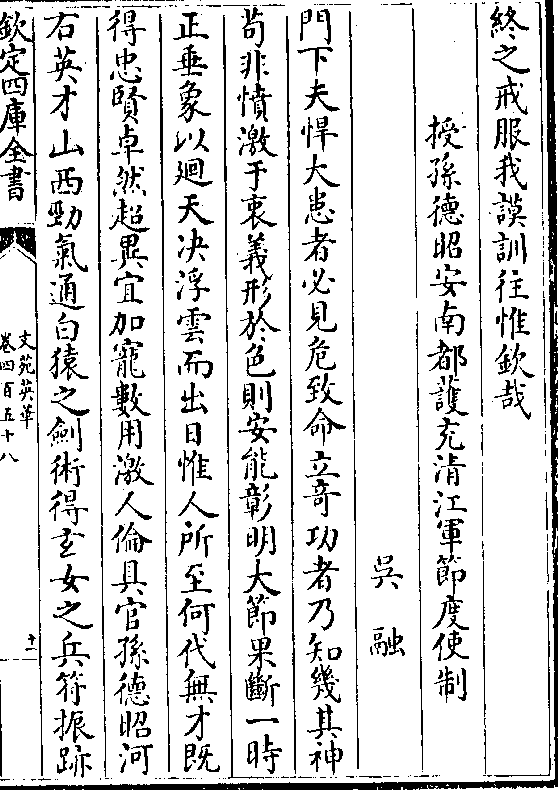 終之戒服我謨訓往惟欽哉
授孫德昭安南都護充清江軍節度使制
吳融
門下夫悍大患者必見危致命立竒功者乃知幾其神
茍非憤激于衷義形於色則安能彰明大節果斷一時
正垂象以廻天决浮雲而出日惟人所至何代無才既
得忠賢卓然超異宜加寵數用激人倫具官孫德昭河
右英才山西勁氣通白猿之劍術得𤣥女之兵符振跡
欽定四庫全書
文苑英華
卷四百五十八
十一